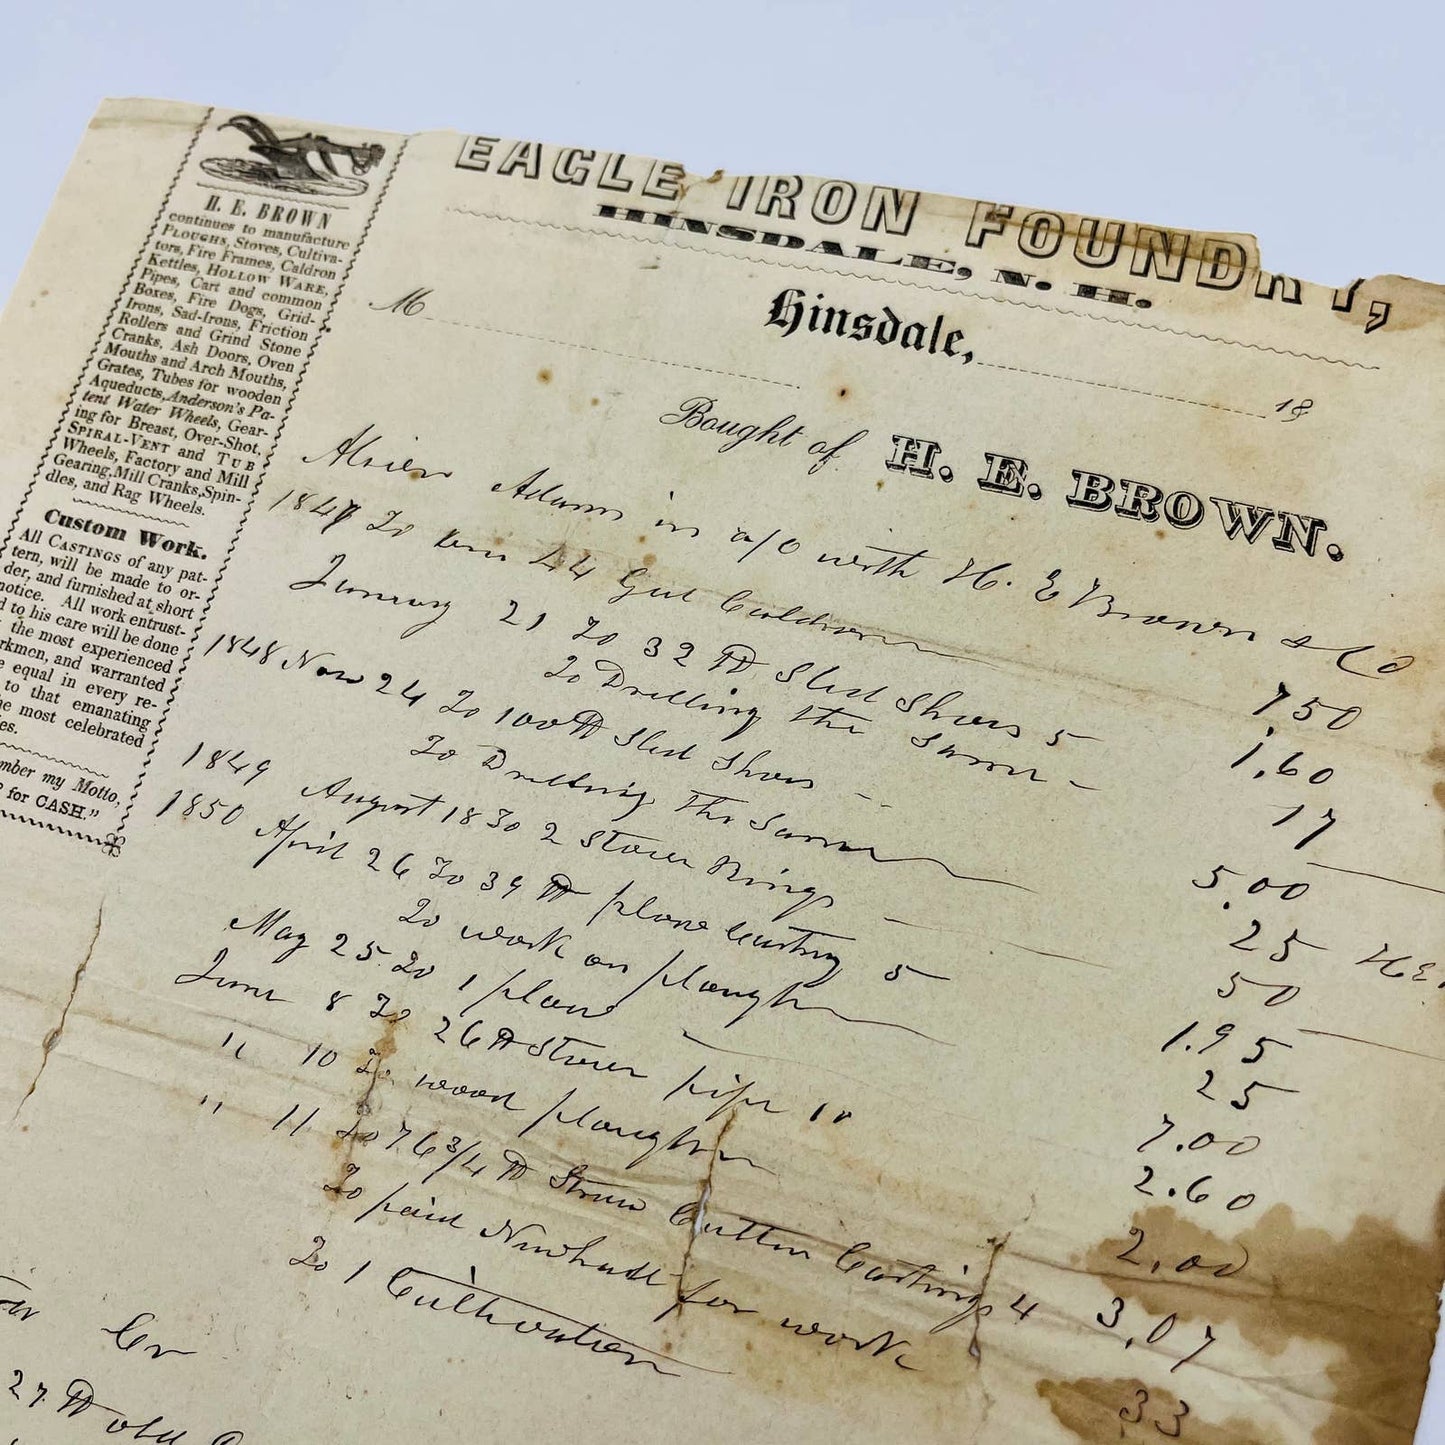 EAGLE IRON FOUNDRY,
HINSDALE, N. H.
Hinsdale,
18
M
Bought of H. E. BROWN.
H. E. BROWN
continues to manufacture
PLOUGHS, Stoves, Cultiva-
tors, Fire Frames, Caldron
Kettles, HOLLOW WARE,
Pipes, Cart and common
Boxes, Fire Dogs, Grid-
Irons, Sad-Irons, Friction
Rollers and Grind Stone
Cranks, Ash Doors, Oven
Mouths and Arch Mouths,
Grates, Tubes for wooden
Aqueducts, Anderson's Pa-
tent Water Wheels, Gear-
ing for Breast, Over-Shot,
SPIRAL-VENT and TUB
Wheels, Factory and Mill
Gearing, Mill Cranks, Spin-
dles, and Rag Wheels.
Custom Work.
All CASTINGS of any pat-
tern, will be made to or-
der, and furnished at short
notice. All work entrust-
d to his care will be done
the most experienced
rkmen, and warranted
e equal in every re-
to that emanating
he most celebrated
es.
mber my Motto,
for CASH."
Adams in a/c with H. E Brown & Co
1847 To 44 Gal Caldron 7.50
January 21 To 32 ℔ Sled Shoes 5 1.60
To Drilling the Same 17
1848 Nov 24 To 100 ℔ Sled Shoes 5.00
To Drilling the Same 25
1849 August 18 To 2 Stove Rings 50
1850 April 26 To 39 ℔ plow Casting 5 1.95
To work on plough 25
May 25 To 1 plow 7.00
June 8 To 26 ℔ Stove pipe 10 2.60
" 10 To wood plough 2.00
" 11 To 76 3/4 ℔ Straw Cutter Castings 4 3.07
To paid Newhall for work 33
To 1 Cultivator
Cr
27 ℔ old